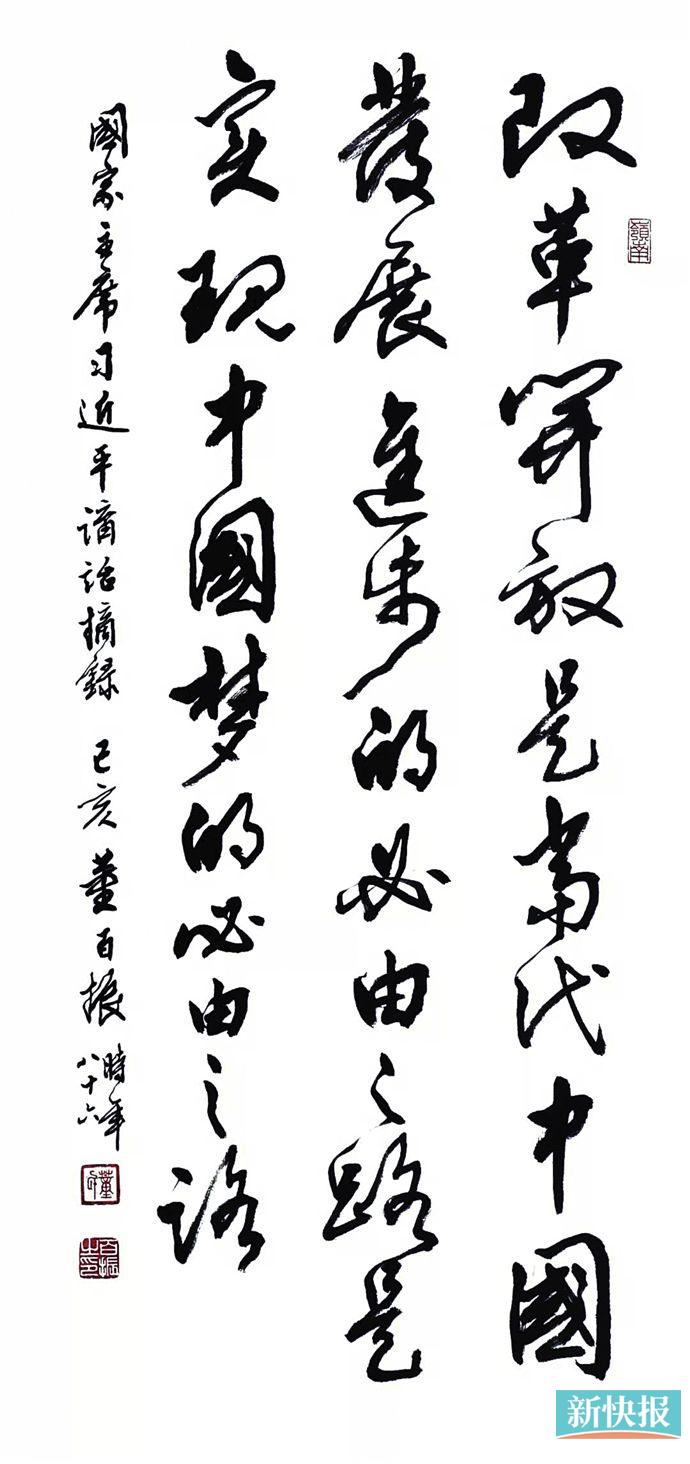 改革開放是當代中國
發展進步的必由之路是
实現中國梦的必由之路
國家主席习近平講話摘録 己亥 董百振 時年八十六
嶺南
董
百振之印
新快报